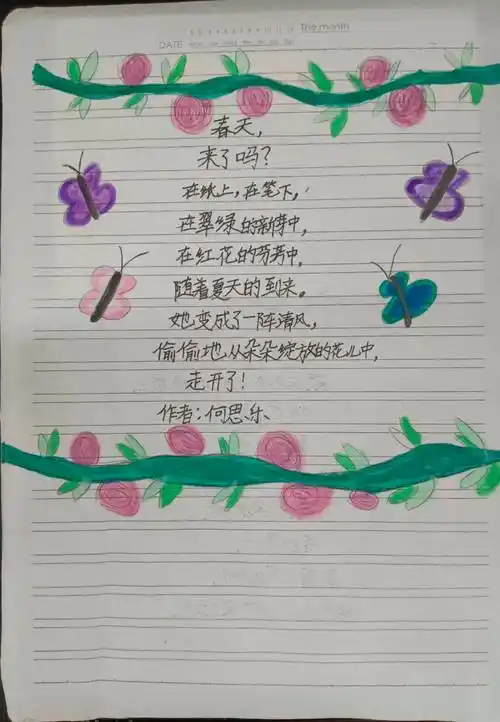 The month
DATE
春天，
来了吗？
在纸上，在笔下，
在翠绿的新诗中，
在红花的芬芳中，
随着夏天的到来。
她变成了一阵清风，
偷偷地从朵朵绽放的花儿中，
走开了！
作者：何思乐